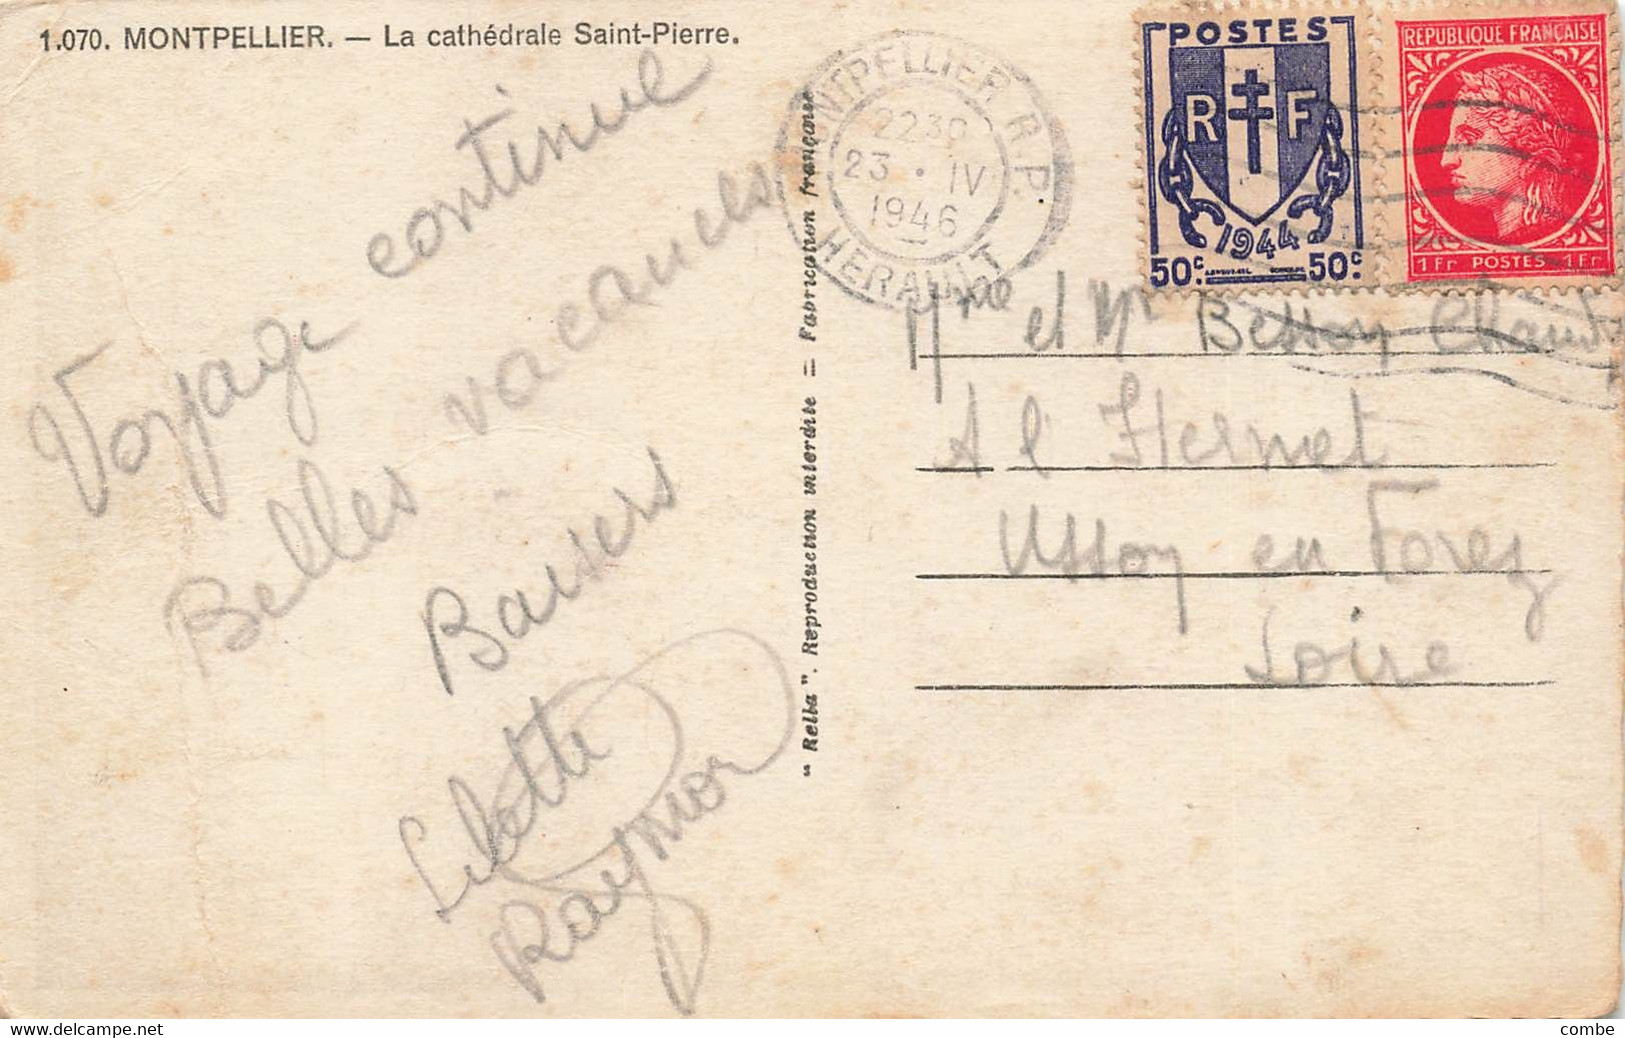 1.070. MONTPELLIER. — La cathédrale Saint-Pierre.
Voyage continue
Belles vacances
Baisers
Lilette
Raymon
" Rella ". Reproduction interdite = Fabrication française
MONTPELLIER R.P.
2230
23 · IV
1946
HERAULT
POSTES
R F
1944
50c. 50c
REPUBLIQUE FRANÇAISE
1 Fr POSTES 1 Fr
Mme et Mr Besson
A l'
Usson en Forez
Loire
www.delcampe.net
combe